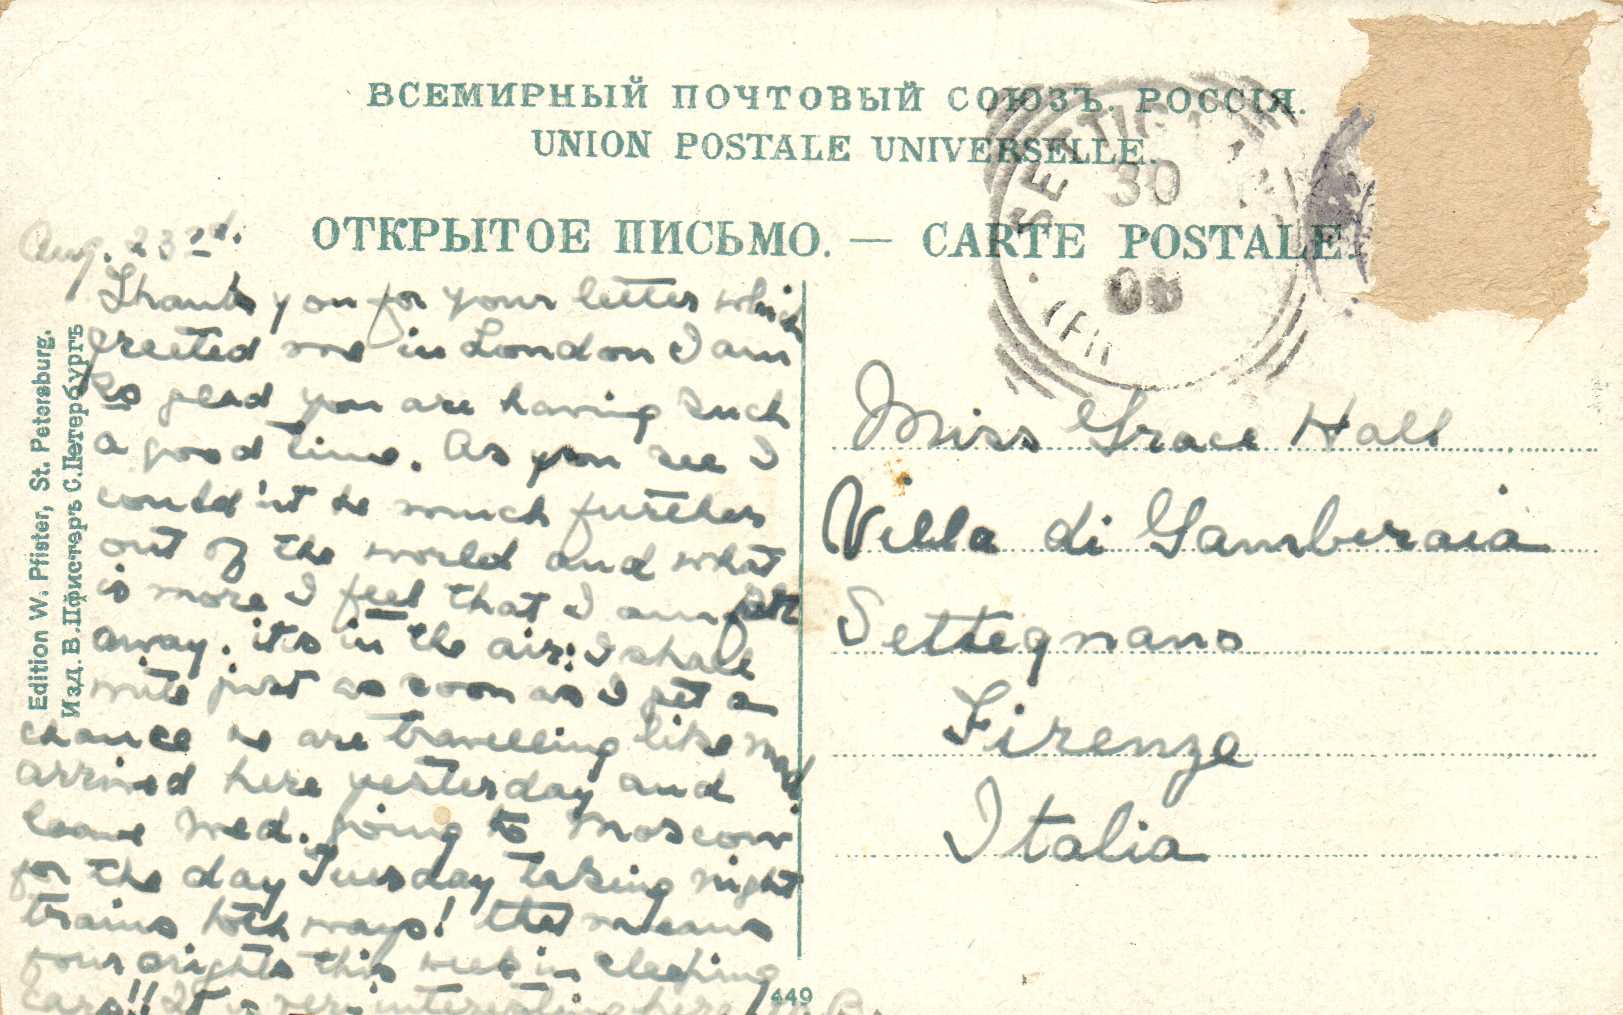 ВСЕМИРНЫЙ ПОЧТОВЫЙ СОЮЗЪ. РОССІЯ.
UNION POSTALE UNIVERSELLE.
ОТКРЫТОЕ ПИСЬМО. — CARTE POSTALE.
30
08
Edition W. Pfister, St. Petersburg.
Изд. В. Пфистеръ С. Петербургъ
Aug. 23rd.
Thanks you for your letter which
greeted me in London I am
so glad you are having such
a good time. As you see I
could'nt be much further
out of the world and what
is more I feel that I am far
away. its in the air! I shall
write just as soon as I get a
chance we are travelling like mad
arrived here yesterday and
leave Wed. going to Moscow
for the day Tuesday taking night
trains both ways! that means
four nights this week in sleeping
cars!! It is very interesting here. M. B.
Miss Grace Hall
Villa di Gamberaia
Settegnano
Firenze
Italia
449